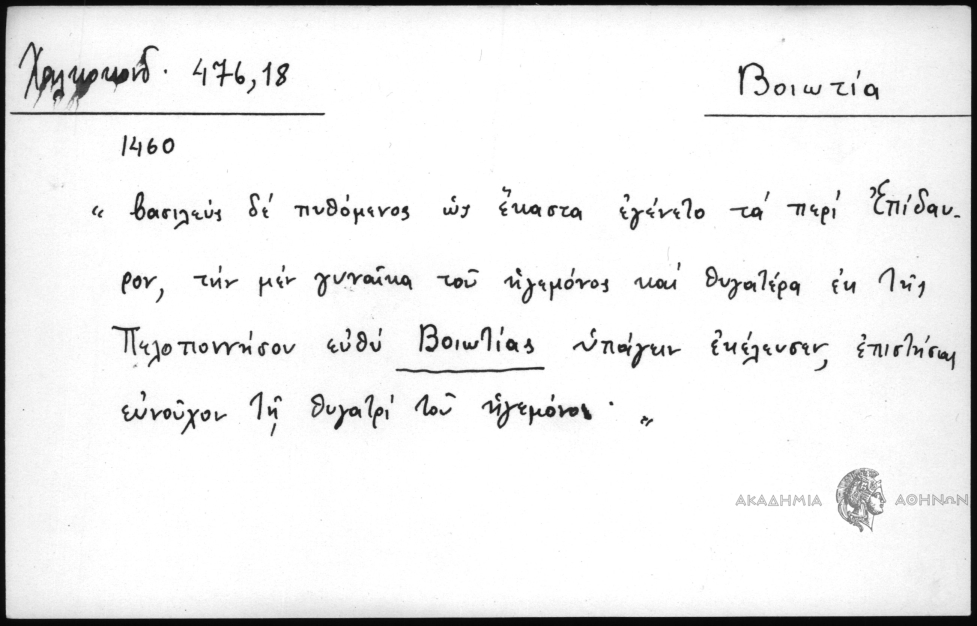 Χαλκοκονδ. 476,18
Βοιωτία
1460
“ βασιλεύς δέ πυθόμενος ὡς ἕκαστα ἐγένετο τά περί Ἐπίδαυ-
ρον, τήν μέν γυναῖκα τοῦ ἡγεμόνος καί θυγατέρα ἐκ τῆς
Πελοποννήσου εὐθύ Βοιωτίας ὑπάγειν ἐκέλευσεν, ἐπιστήσας
εὐνοῦχον τῇ θυγατρί τοῦ ἡγεμόνος · „
ΑΚΑΔΗΜΙΑ ΑΘΗΝΩΝ